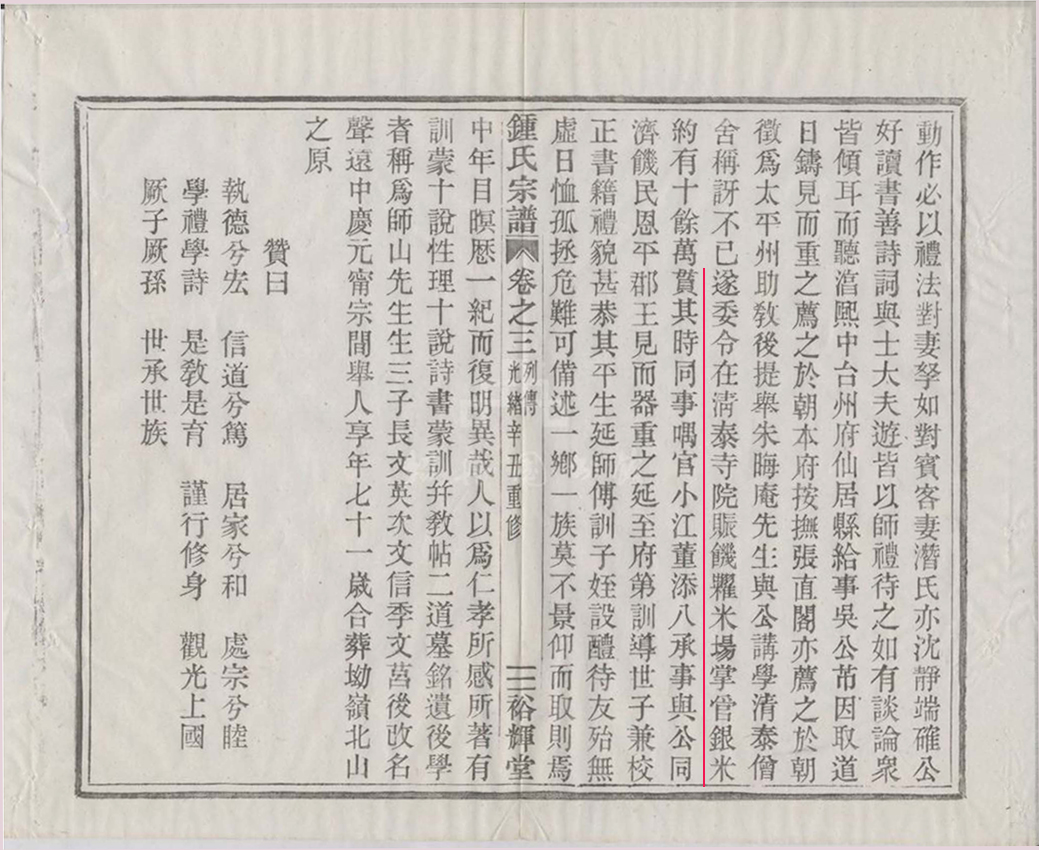 動作必以禮法對妻孥如對賓客妻潛氏亦沈靜端確公
好讀書善詩詞與士大夫遊皆以師禮待之如有談論衆
皆傾耳而聽湻熙中台州府仙居縣給事吳公芾因取道
日鑄見而重之薦之於朝本府按撫張直閣亦薦之於朝
徵爲太平州助敎後提舉朱晦庵先生與公講學清泰僧
舍稱訝不已遂委令在淸泰寺院賑饑糶米場掌管銀米
約有十餘萬貫其時同事喁官小江董添八承事與公同
濟饑民恩平郡王見而器重之延至府第訓導世子兼校
正書籍禮貌甚恭其平生延師傅訓子姪設醴待友殆無
虛日恤孤拯危難可備述一鄉一族莫不景仰而取則焉
鍾氏宗譜 卷之三 列傳 光緖辛丑重修 三 裕輝堂
中年目暝歴一紀而復明異哉人以爲仁孝所感所著有
訓蒙十說性理十說詩書蒙訓幷敎帖二道墓銘遺後學
者稱爲師山先生生三子長文英次文信季文莒後改名
聲遠中慶元甯宗間舉人享年七十一歲合葬坳嶺北山
之原
贊曰
執德兮宏 信道兮篤 居家兮和 處宗兮睦
學禮學詩 是敎是育 謹行修身 觀光上國
厥子厥孫 世承世族